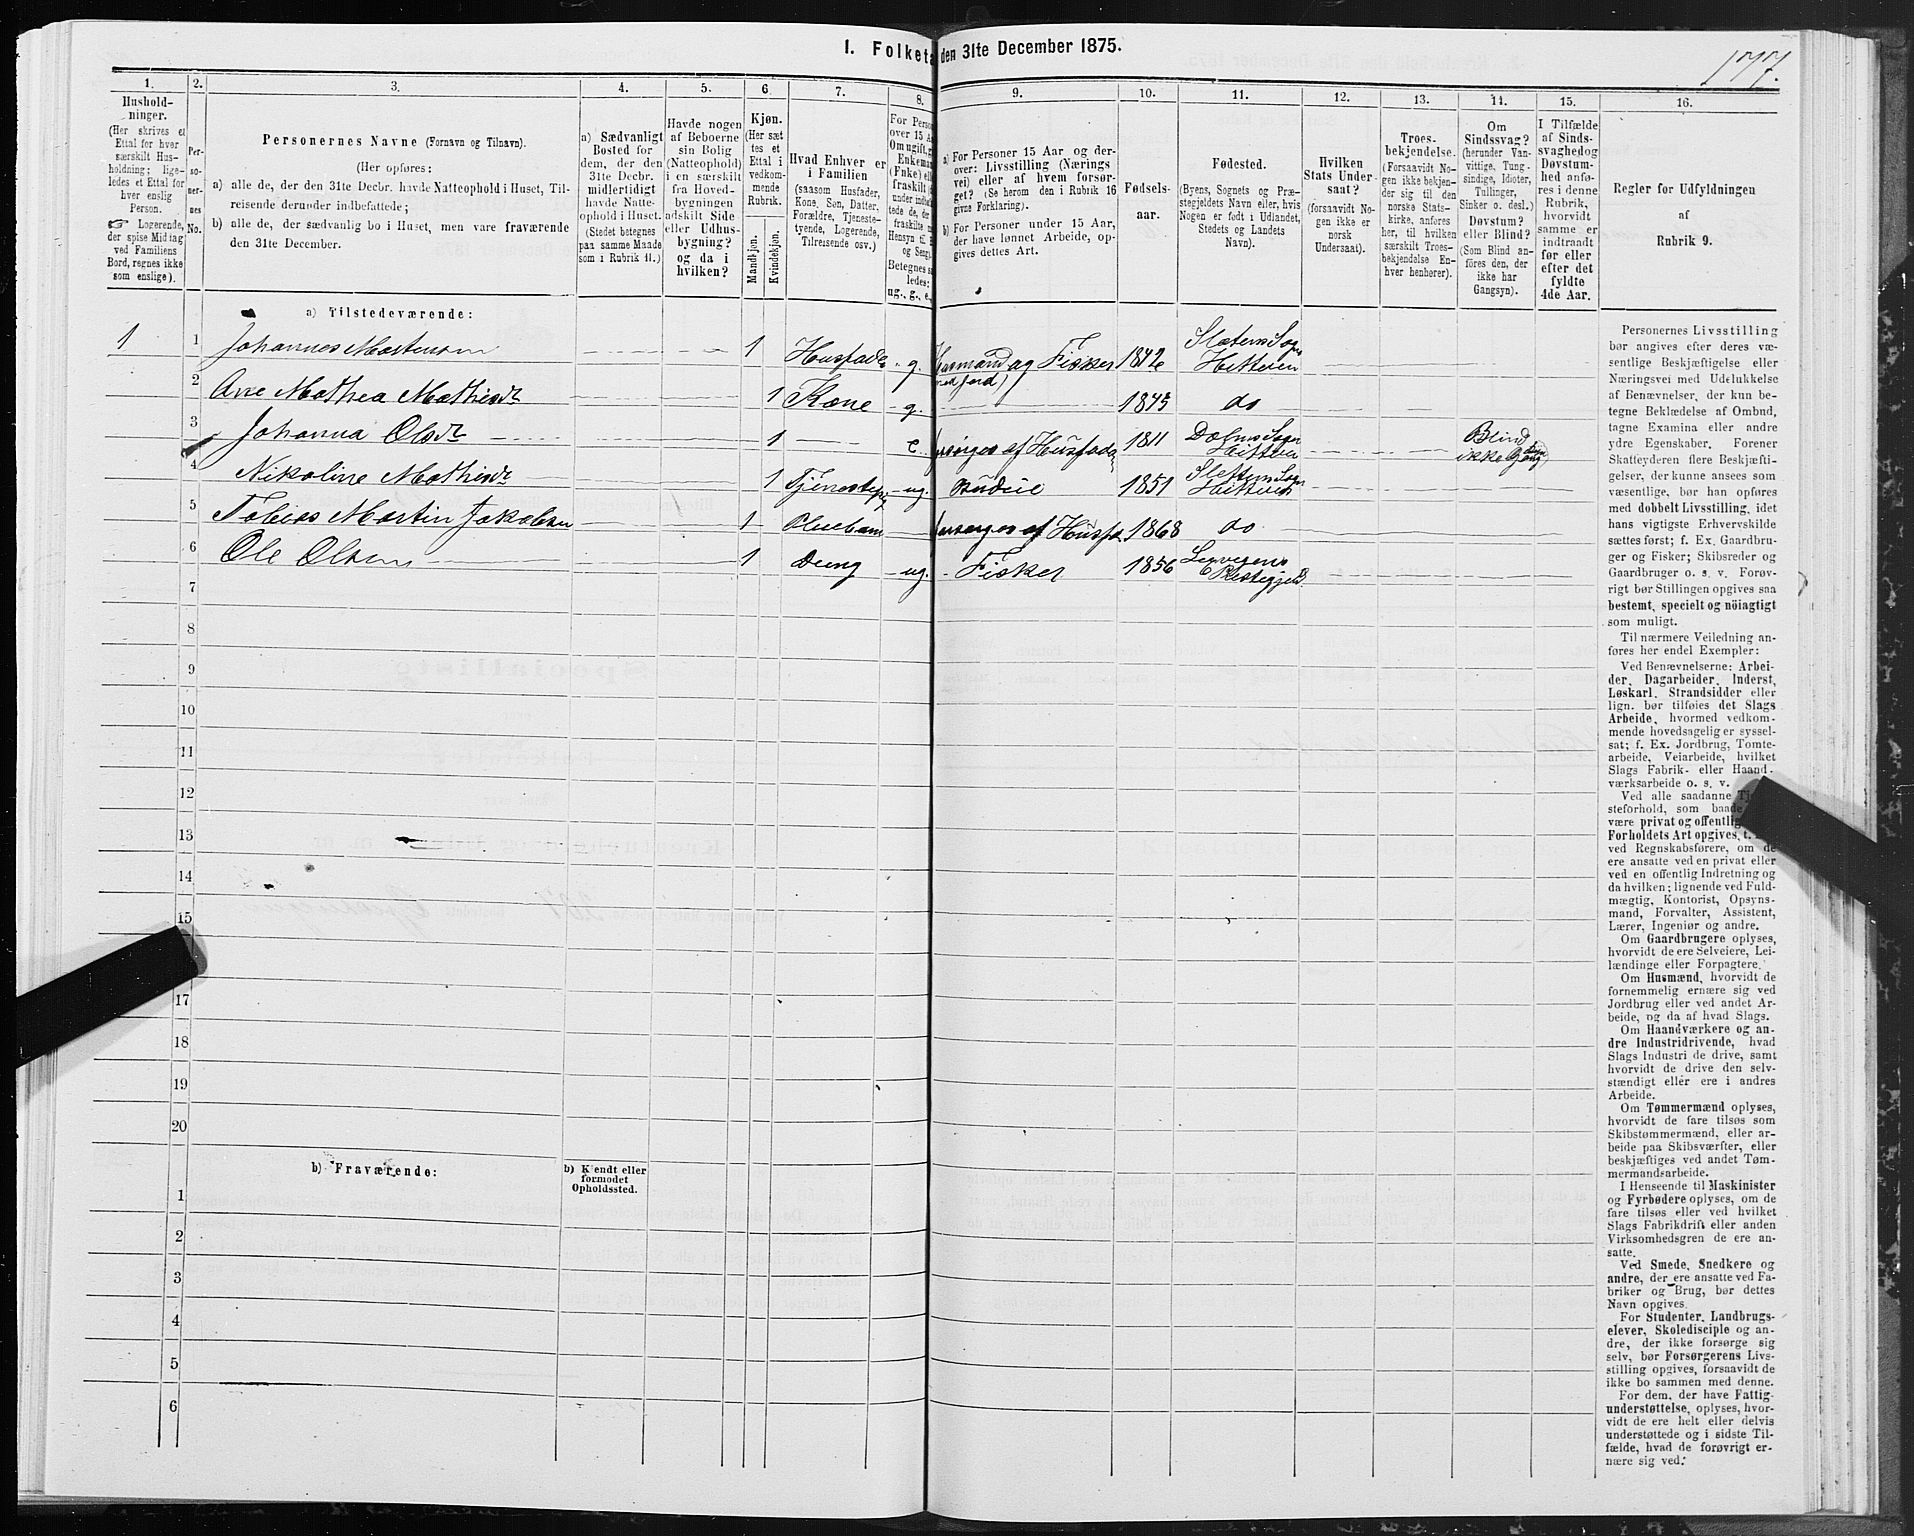 1. Folketa den 31te December 1875.
177.
1.
Hushold-
ninger.
(Her skrives et
Ettal for hver
særskilt Hus-
holdning; lige-
ledes et Ettal for
hver enslig
Person.
☞ Logerende,
der spise Middag
ved Familiens
Bord, regnes ikke
som enslige).
2.
Per-
so-
ner-
nes
No.
3.
Personernes Navne (Fornavn og Tilnavn).
(Her opføres:
a) alle de, der den 31te Decbr. havde Natteophold i Huset, Til-
reisende derunder indbefattede;
b) alle de, der sædvanlig bo i Huset, men vare fraværende
den 31te December.
4.
a) Sædvanligt
Bosted for
dem, der den
31te Decbr.
midlertidigt
havde Natte-
ophold i Huset.
(Stedet betegnes
paa samme Maade
som i Rubrik 11.)
5.
Havde nogen
af Beboerne
sin Bolig
(Natteophold)
i en særskilt
fra Hoved-
bygningen
adskilt Side-
eller Udhus-
bygning?
og da i
hvilken?
6.
Kjøn.
(Her sæt-
tes et
Ettal i
vedkom-
mende
Rubrik.
Mandkjøn.
Kvindekjøn.
7.
Hvad Enhver er
i Familien
(saasom Husfader,
Kone, Søn, Datter,
Forældre, Tjeneste-
tyende, Logerende,
Tilreisende osv.)
8.
For Person
over 15 Aa
Om ugift, g
Enkeman
(Enke) ell
fraskilt (
under indbe
tede de, der
fraskilte m
Hensyn til B
og Seng).
Betegnes sa
ledes:
ug., g., e.,
9.
a) For Personer 15 Aar og der-
over: Livsstilling (Nærings
vei) eller af hvem forsør-
get? (Se herom den i Rubrik 16
givne Forklaring).
b) For Personer under 15 Aar,
der have lønnet Arbeide, op-
gives dettes Art.
10.
Fødsels-
aar.
11.
Fødested.
(Byens, Sognets og Præ-
stegjeldets Navn eller, hvis
Nogen er født i Udlandet,
Stedets og Landets
Navn).
12.
Hvilken
Stats Under-
saat?
(forsaavidt No-
gen ikke er
norsk
Undersaat).
13.
Troes-
bekjendelse.
(Forsaavidt No-
gen ikke bekjen-
der sig til den
norske Stats-
kirke, anføres
her, til hvilken
særskilt Troes-
bekjendelse En-
hver henhører).
14.
Om
Sindssvag?
(herunder Van-
vittige, Tung-
sindige, Idioter,
Tullinger,
Sinker o. desl.)
Døvstum?
eller Blind?
(Som Blind an-
føres den, der
ikke har
Gangsyn).
15.
I Tilfælde
af Sinds-
svaghed og
Døvstum-
hed anfø-
res i denne
Rubrik,
hvorvidt
samme er
indtraadt
før eller
efter det
fyldte
4de Aar.
16.
Regler for Udfyldningen
af
Rubrik 9.
a) Tilstedeværende:
1 1 Johannes Mortensen 1 Husfader g. Husmand og Fisker 1842 Sletten Sogn
(med Jord) Hitteren
2 Ane Mathea Mathisdr 1 Kone g. 1845 do
3 Johanna Olsdr 1 e. forsørges af Husfader 1811 Dolm Sogn Blind
Hitteren ikke Gang
4 Nikoline Mathisdr 1 Tjenestepige ug. Budeie 1851 Sletten Sogn
Hitteren
5 Tobias Martin Jakobsen 1 Pleiebarn forsørges af Husfa 1868 do
6 Ole Olsen 1 Dreng ug. Fisker 1856
Præstegjeld
7
8
9
10
11
12
13
14
15
17
18
19
20
b) Fraværende:
b) Kjendt eller
formodet
Opholdssted.
1
2
3
4
5
6
Personernes Livsstilling
bør angives efter deres væ-
sentlige Beskjæftigelse eller
Næringsvei med Udelukkelse
af Benævnelser, der kun be-
tegne Beklædelse af Ombud,
tagne Examina eller andre
ydre Egenskaber. Forener
Skatteyderen flere Beskjæfti-
gelser, der kunne ansees som
væsentlige, bør han opføres
med dobbelt Livsstilling, idet
hans vigtigste Erhvervskilde
sættes først; f. Ex. Gaardbru-
ger og Fisker; Skibsreder og
Gaardbruger o. s. v. Forøv-
rigt bør Stillingen opgives saa
bestemt, specielt og nöiagtigt
som muligt.
Til nærmere Veiledning an-
føres her endel Exempler:
Ved Benævnelserne: Arbei-
der, Dagarbeider, Inderst,
Løskarl, Strandsidder eller
lign. bør tilføies det Slags
Arbeide, hvormed vedkom-
mende hovedsagelig er syssel-
sat; f. Ex. Jordbrug, Tomte-
arbeide, Veiarbeide, hvilket
Slags Fabrik- eller Haand-
værksarbeide o. s. v.
Ved alle saadanne Tj
steforhold, som baade
være privat og offentlig
Forholdets Art opgives, t.
ved Regnskabsførere, om de
ere ansatte ved en privat eller
ved en offentlig Indretning og
da hvilken; lignende ved Fuld-
mægtig, Kontorist, Opsyns-
mand, Forvalter, Assistent,
Lærer, Ingeniør og andre.
Om Gaardbrugere oplyses,
hvorvidt de ere Selveiere, Lei-
lændinge eller Forpagtere.
Om Husmænd, hvorvidt de
fornemmelig ernære sig ved
Jordbrug eller ved andet Ar-
beide, og da af hvad Slags.
Om Haandværkere og an-
dre Industridrivende, hvad
Slags Industri de drive, samt
hvorvidt de drive den selv-
stændigt eller ere i andres
Arbeide.
Om Tømmermænd oplyses,
hvorvidt de fare tilsøs som
Skibstømmermænd, eller ar-
beide paa Skibsværfter, eller
beskjæftiges ved andet Tøm-
mermandsarbeide.
I Henseende til Maskinister
og Fyrbødere oplyses, om de
fare tilsøs eller ved hvilket
Slags Fabrikdrift eller anden
Virksomhedsgren de ere an-
satte.
Ved Smede, Snedkere og
andre, der ere ansatte ved Fa-
briker og Brug, bør dettes
Navn opgives.
For Studenter, Landbrugs-
elever, Skoledisciple og an-
dre, der ikke forsørge sig
selv, bør Forsørgerens Livs-
stilling opgives, forsaavidt de
ikke bo sammen med denne.
For dem, der have Fattig-
understøttelse, oplyses, hvor-
vidt de ere helt eller delvis
understøttede og i sidste Til-
fælde, hvad de forøvrigt er-
nære sig ved.